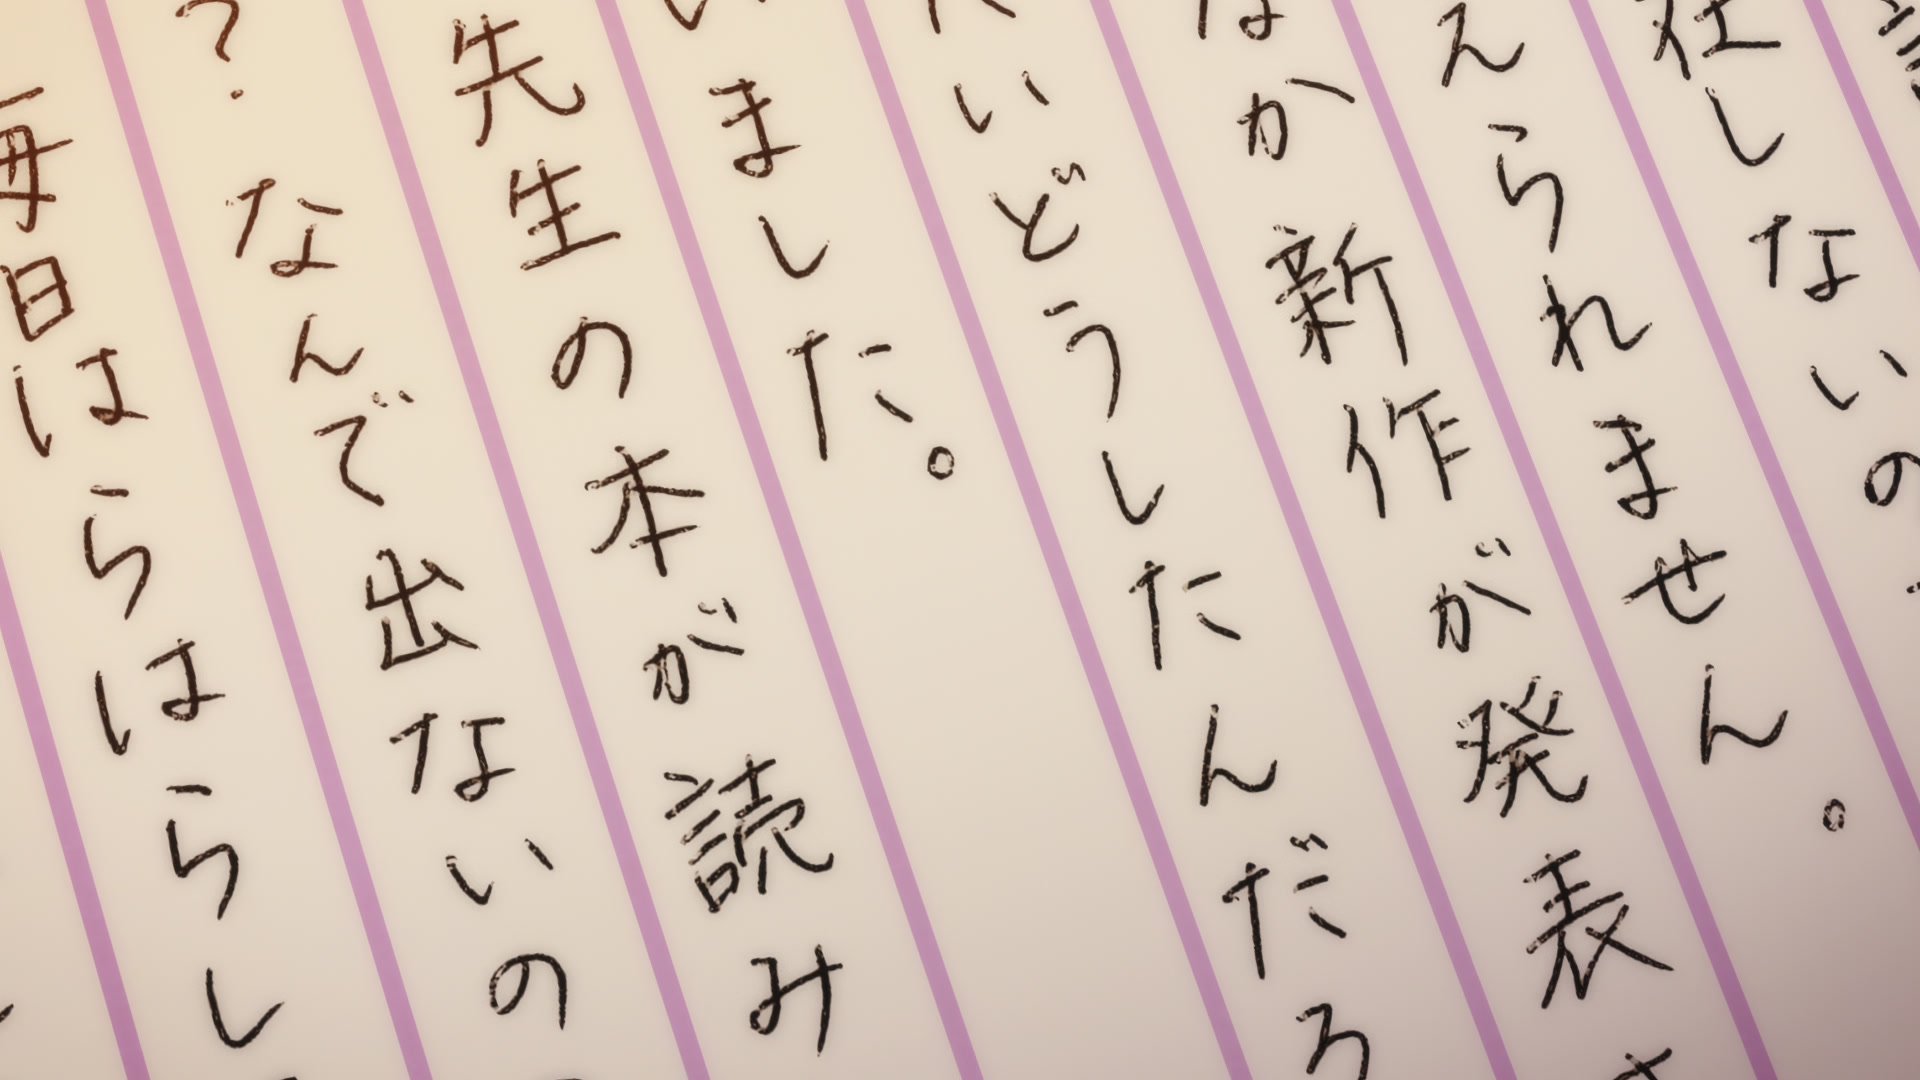 社しないの
えられません。
なか新作が発表さ
たいどうしたんだろ
いました。
先生の本が読み
?なんで出ないの
毎日はらはらし